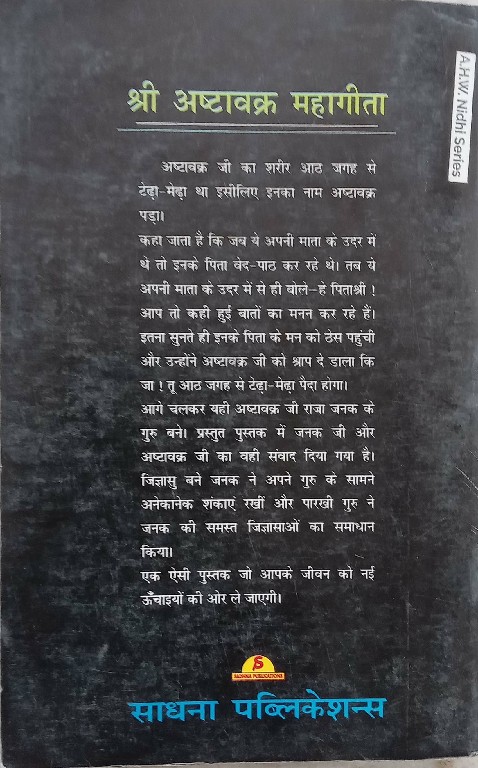 A.H.W. Nidhi Series
श्री अष्टावक्र महागीता
अष्टावक्र जी का शरीर आठ जगह से
टेढ़ा-मेढ़ा था इसीलिए इनका नाम अष्टावक्र
पड़ा।
कहा जाता है कि जब ये अपनी माता के उदर में
थे तो इनके पिता वेद-पाठ कर रहे थे। तब ये
अपनी माता के उदर में से ही बोले-हे पिताश्री !
आप तो कही हुई बातों का मनन कर रहे हैं।
इतना सुनते ही इनके पिता के मन को ठेस पहुंची
और उन्होंने अष्टावक्र जी को श्राप दे डाला कि
जा ! तू आठ जगह से टेढ़ा-मेढ़ा पैदा होगा।
आगे चलकर यही अष्टावक्र जी राजा जनक के
गुरु बने। प्रस्तुत पुस्तक में जनक जी और
अष्टावक्र जी का वही संवाद दिया गया है।
जिज्ञासु बने जनक ने अपने गुरु के सामने
अनेकानेक शंकाएं रखीं और पारखी गुरु ने
जनक की समस्त जिज्ञासाओं का समाधान
किया।
एक ऐसी पुस्तक जो आपके जीवन को नई
ऊँचाइयों की ओर ले जाएगी।
SADHNA PUBLICATIONS
साधना पब्लिकेशन्स